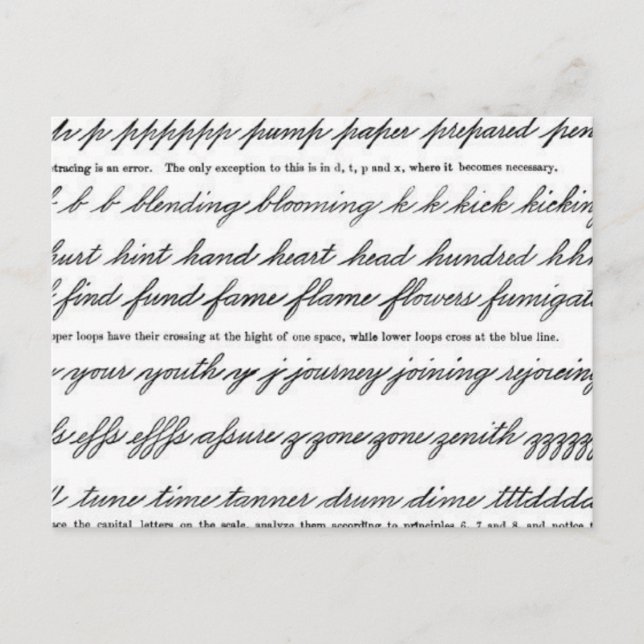 p pppppp pump paper prepared pen
tracing is an error. The only exception to this is in d, t, p and x, where it becomes necessary.
b b blending blooming k k kick kicking
hurt hint hand heart head hundred hh
find fund fame flame flowers fumigat
per loops have their crossing at the hight of one space, while lower loops cross at the blue line.
your youth y j journey joining rejoicing
effs efffs assure z zone zone zenith zzzzz
tune time tanner drum dime tttdddd
ace the capital letters on the scale, analyze them according to principles 6, 7 and 8, and notice t